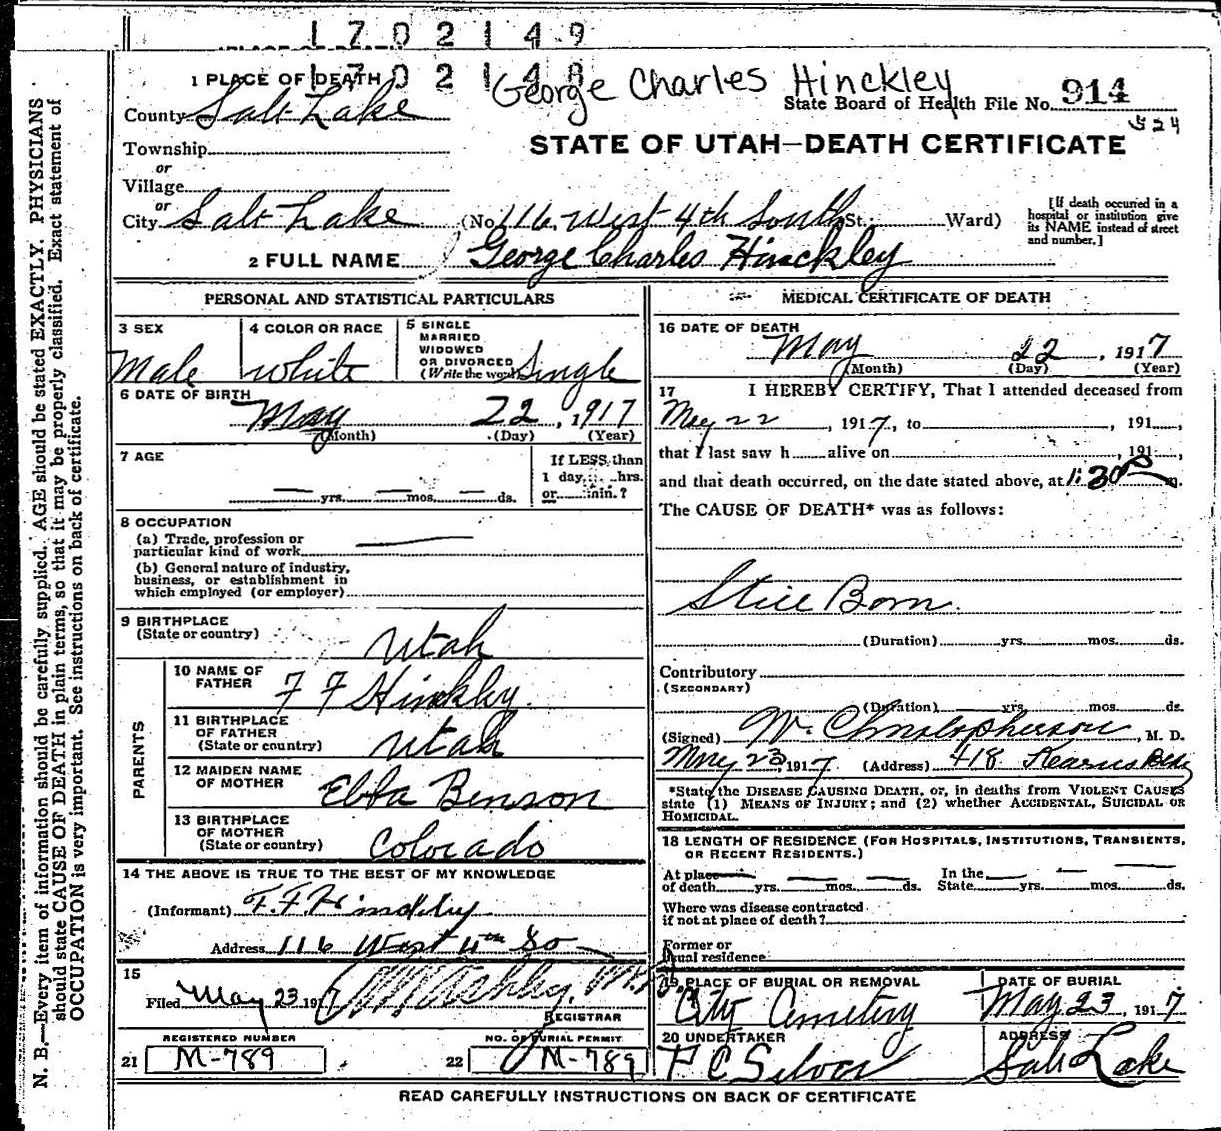 1702149
1702148
George Charles Hinckley
1 PLACE OF DEATH
State Board of Health File No. 914
524
County Salt Lake
STATE OF UTAH—DEATH CERTIFICATE
Township
or
Village
or
City Salt Lake (No. 116 West 4th South St.; Ward)
[If death occurred in a hospital or institution give its NAME instead of street and number.]
2 FULL NAME George Charles Hinckley
PERSONAL AND STATISTICAL PARTICULARS
3 SEX
Male
4 COLOR OR RACE
White
5 SINGLE
MARRIED
WIDOWED
OR DIVORCED
(Write the word) Single
6 DATE OF BIRTH
May 22, 1917
(Month) (Day) (Year)
7 AGE
— yrs. — mos. — ds.
If LESS than
1 day, hrs.
or min.?
8 OCCUPATION
(a) Trade, profession or
particular kind of work
(b) General nature of industry,
business, or establishment in
which employed (or employer)
9 BIRTHPLACE
(State or country) Utah
PARENTS
10 NAME OF
FATHER F F Hinkley
11 BIRTHPLACE
OF FATHER
(State or country) Utah
12 MAIDEN NAME
OF MOTHER Ebba Benson
13 BIRTHPLACE
OF MOTHER
(State or country) Colorado
14 THE ABOVE IS TRUE TO THE BEST OF MY KNOWLEDGE
(Informant) F. F. Hinckley
Address 116 West 4th So
15
Filed May 23 1917
REGISTRAR
REGISTERED NUMBER
21 M-789
NO. OF BURIAL PERMIT
22 M-789
MEDICAL CERTIFICATE OF DEATH
16 DATE OF DEATH
May 22, 1917
(Month) (Day) (Year)
17 I HEREBY CERTIFY, That I attended deceased from
May 22, 1917, to , 191 ,
that I last saw h alive on , 191 ,
and that death occurred, on the date stated above, at 1:30 P m.
The CAUSE OF DEATH* was as follows:
Still Born.
(Duration) yrs. mos. ds.
Contributory
(SECONDARY)
(Duration) yrs. mos. ds.
(Signed) W. Christopherson, M. D.
May 23, 1917 (Address) 418 Kearns Bldg
*State the DISEASE CAUSING DEATH, or, in deaths from VIOLENT CAUSES
state (1) MEANS OF INJURY; and (2) whether ACCIDENTAL, SUICIDAL OR
HOMICIDAL.
18 LENGTH OF RESIDENCE (FOR HOSPITALS, INSTITUTIONS, TRANSIENTS,
OR RECENT RESIDENTS.)
At place
of death yrs. mos. ds.
In the
State yrs. mos. ds.
Where was disease contracted
if not at place of death?
Former or
usual residence
19 PLACE OF BURIAL OR REMOVAL
City Cemetery
DATE OF BURIAL
May 23, 1917
20 UNDERTAKER
ADDRESS
Salt Lake
READ CAREFULLY INSTRUCTIONS ON BACK OF CERTIFICATE
N. B.—Every item of information should be carefully supplied. AGE should be stated EXACTLY. PHYSICIANS
should state CAUSE OF DEATH in plain terms, so that it may be properly classified. Exact statement of
OCCUPATION is very important. See instructions on back of certificate.